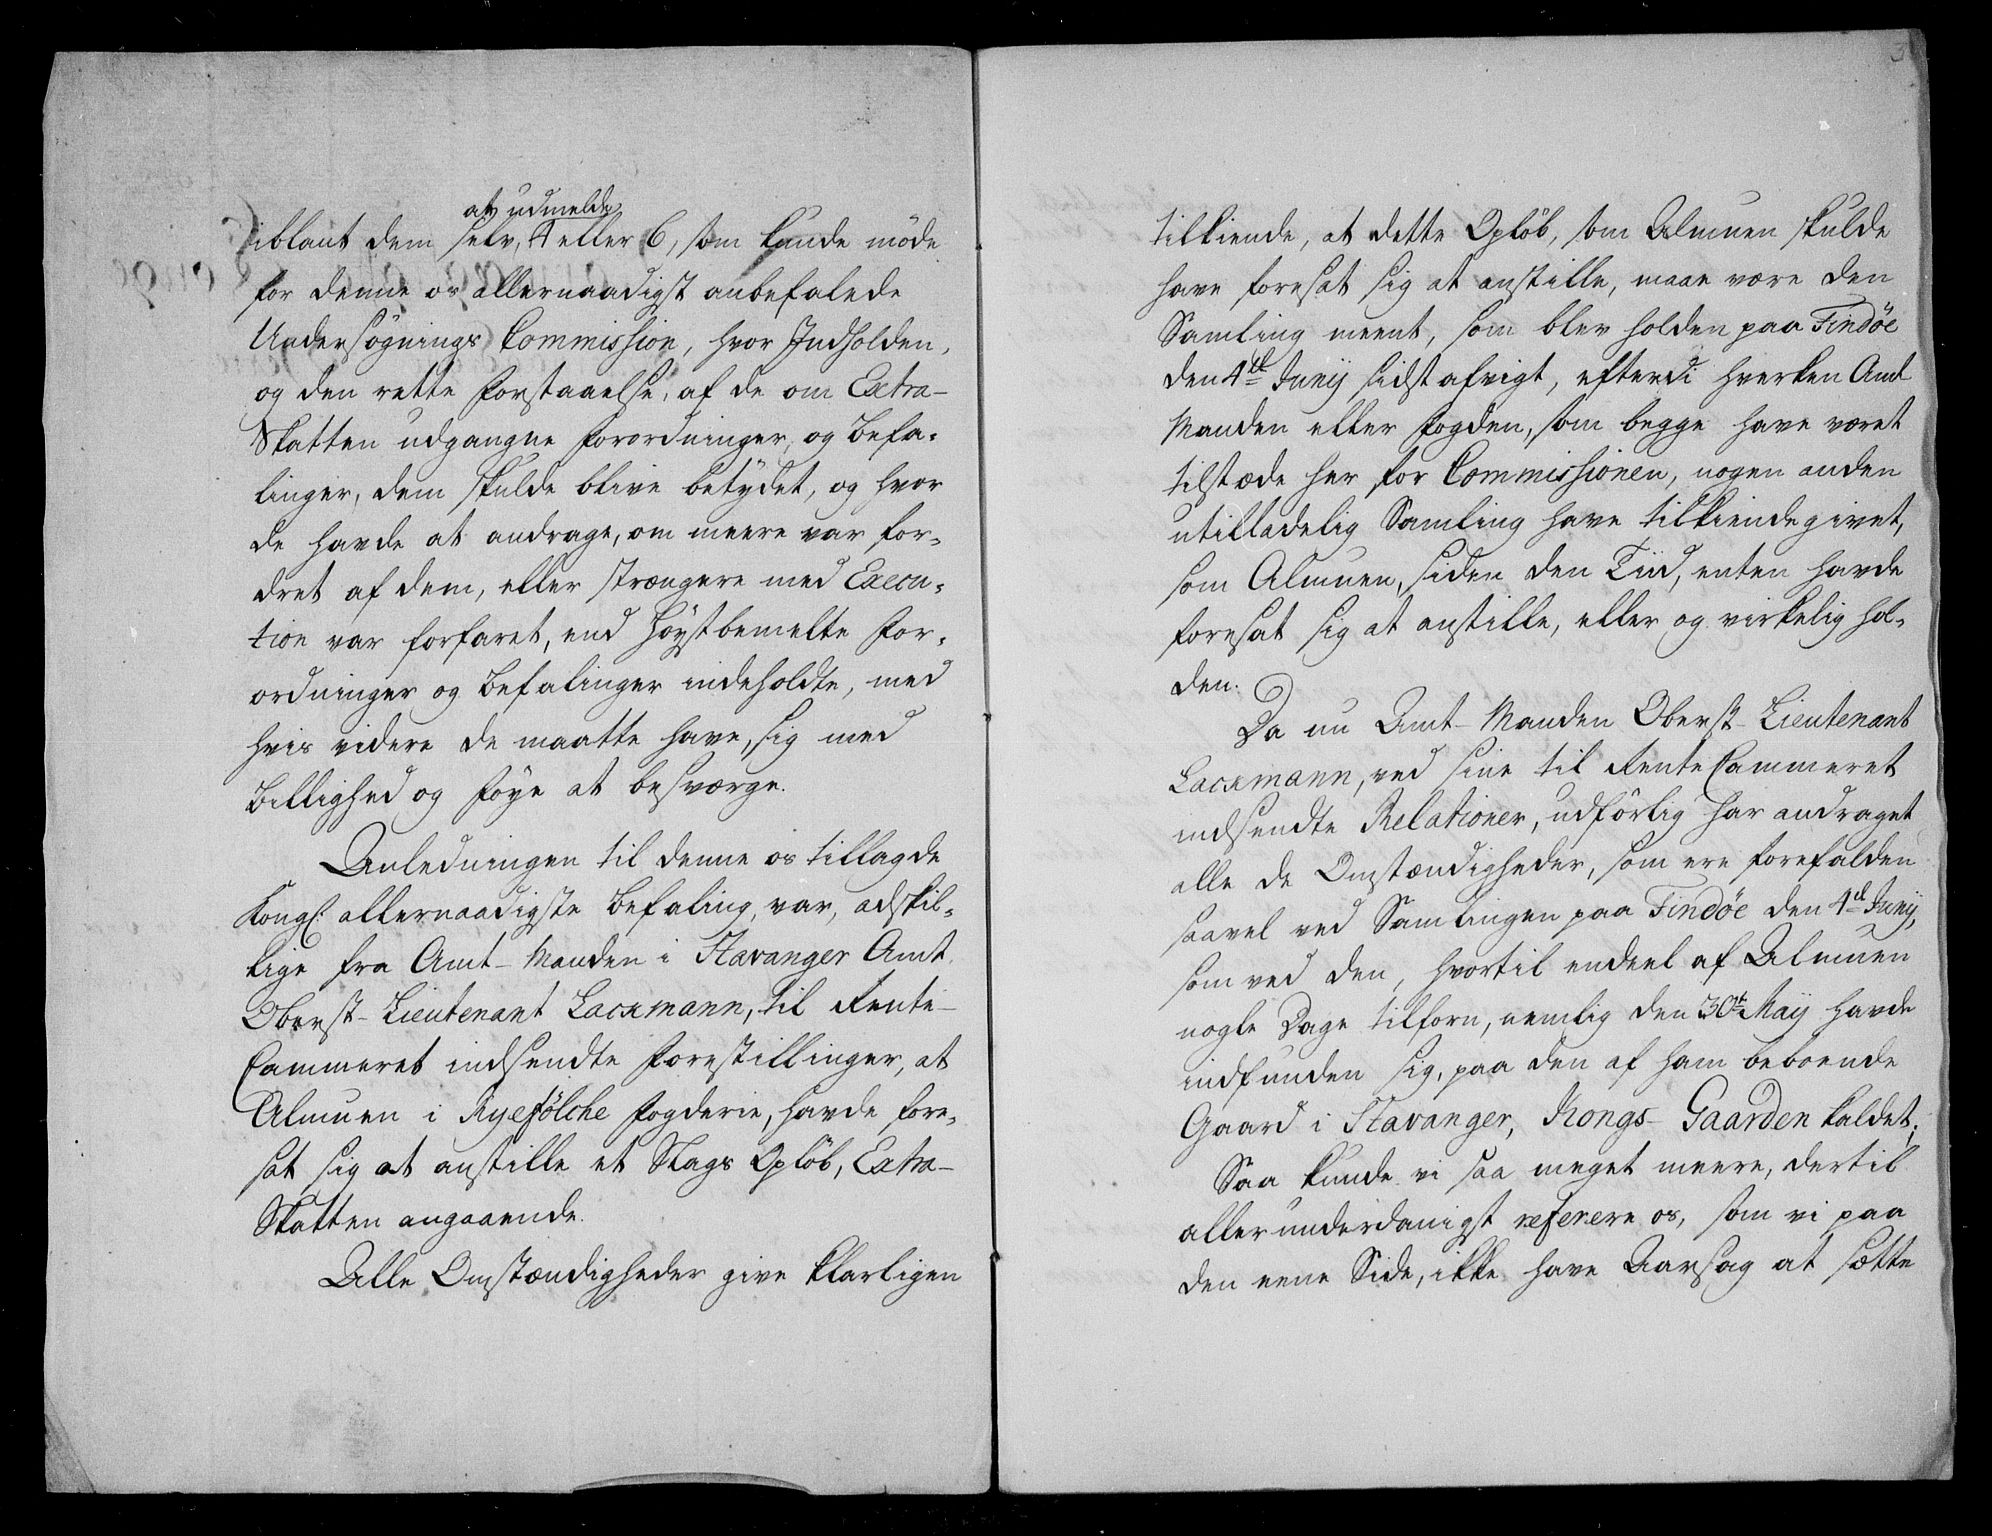 at udmelde
iblant dem selv, 4 eller 6, som kunde møde
for denne os allernaadigst anbefalede
Undersøgnings Commission, hvor Indholden,
og den rette Forstaaelse, af de om Extra-
Skatten udgangne Forordninger, og Befa-
linger, dem skulde blive betydet, og hvor
de havde at andrage, om meere var for-
dret af dem, eller strængere med Execu-
tion var forfaret, end høystbemelte For-
ordninger og Befalinger indeholdte, med
hvis videre de maatte have, sig med
Billighed og Føye at besværge.
Anledningen til denne os tillagde
Kongl: allernaadigste Befaling, var, adskil-
lige fra Amt-Manden i Stavanger Amt
Oberst-Lieutenant Lackmann, til Rente-
Cammeret indsendte Forestillinger, at
Almuen i Ryefølche Fogderie, havde fore-
sat sig at anstille et Slags Opløb, Extra-
Skatten angaaende.
Alle Omstændigheder give klarligen
3
tilkiende, at dette Opløb, som Almuen skulde
have foresat sig at anstille, maae være den
Samling meent, som blev holden paa Findøe
den 4de Junij sidst afvigt, efterdi hverken Amt
Manden eller Fogden, som begge have været
tilstæde her for Commissionen, nogen anden
utilladelig Samling have tilkiendegivet,
som Almuen, siden den Tiid, enten havde
foresat sig at anstille, eller og virkelig hol-
den.
Da nu Amt-Manden Oberst-Lieutenant
Lackmann, ved sine til RenteCammeret
indsendte Relationer, udførlig har andraget
alle de Omstændigheder, som ere forefalden
saavel ved Samlingen paa Findøe den 4de Junij,
som ved den, hvortil endeel af Almuen
nogle Dage tilforn, nemlig den 30te Maij havde
indfunden sig, paa den af ham beboende
Gaard i Stavanger, Kongs-Gaarden kaldet;
Saa kunde vi saa meget meere, dertil
allerunderdanigst referere os, som vi paa
den eene Side, ikke have Aarsag at sætte